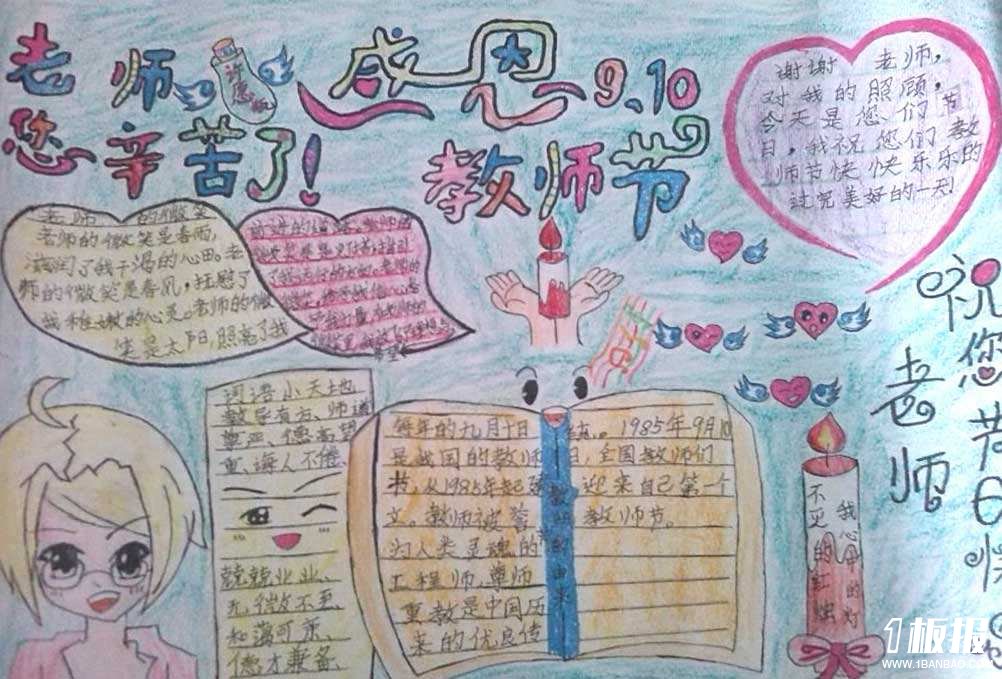 老师 感恩 9、10
您辛苦了！ 教师节
许愿瓶
谢谢 老师，
对我的照顾，
今天是您们节
日，我祝您们教
师节快快乐乐的
过完美好的一天！
老师 的微笑
老师的微笑是春雨，
滋润了我干渴的心田。老
师的微笑是春风，抚慰了
我稚嫩的心灵。老师的微
笑是太阳，照亮了我
词语小天地
教导有方、师道
尊严、德高望
重、诲人不倦、
兢兢业业、
无微不至、
和蔼可亲、
德才兼备、
每年的九月十日
是我国的教师
书，从1985年起
文。教师被誉
为人类灵魂的
工程师，尊师
重教是中国历
来的优良传
教师节的由来
统。1985年9月10
日，全国教师们
迎来自己第一个
教师节。
我心中的灯
不灭的红烛
祝您节日快
老师
板报
WWW.1BANBAO.COM